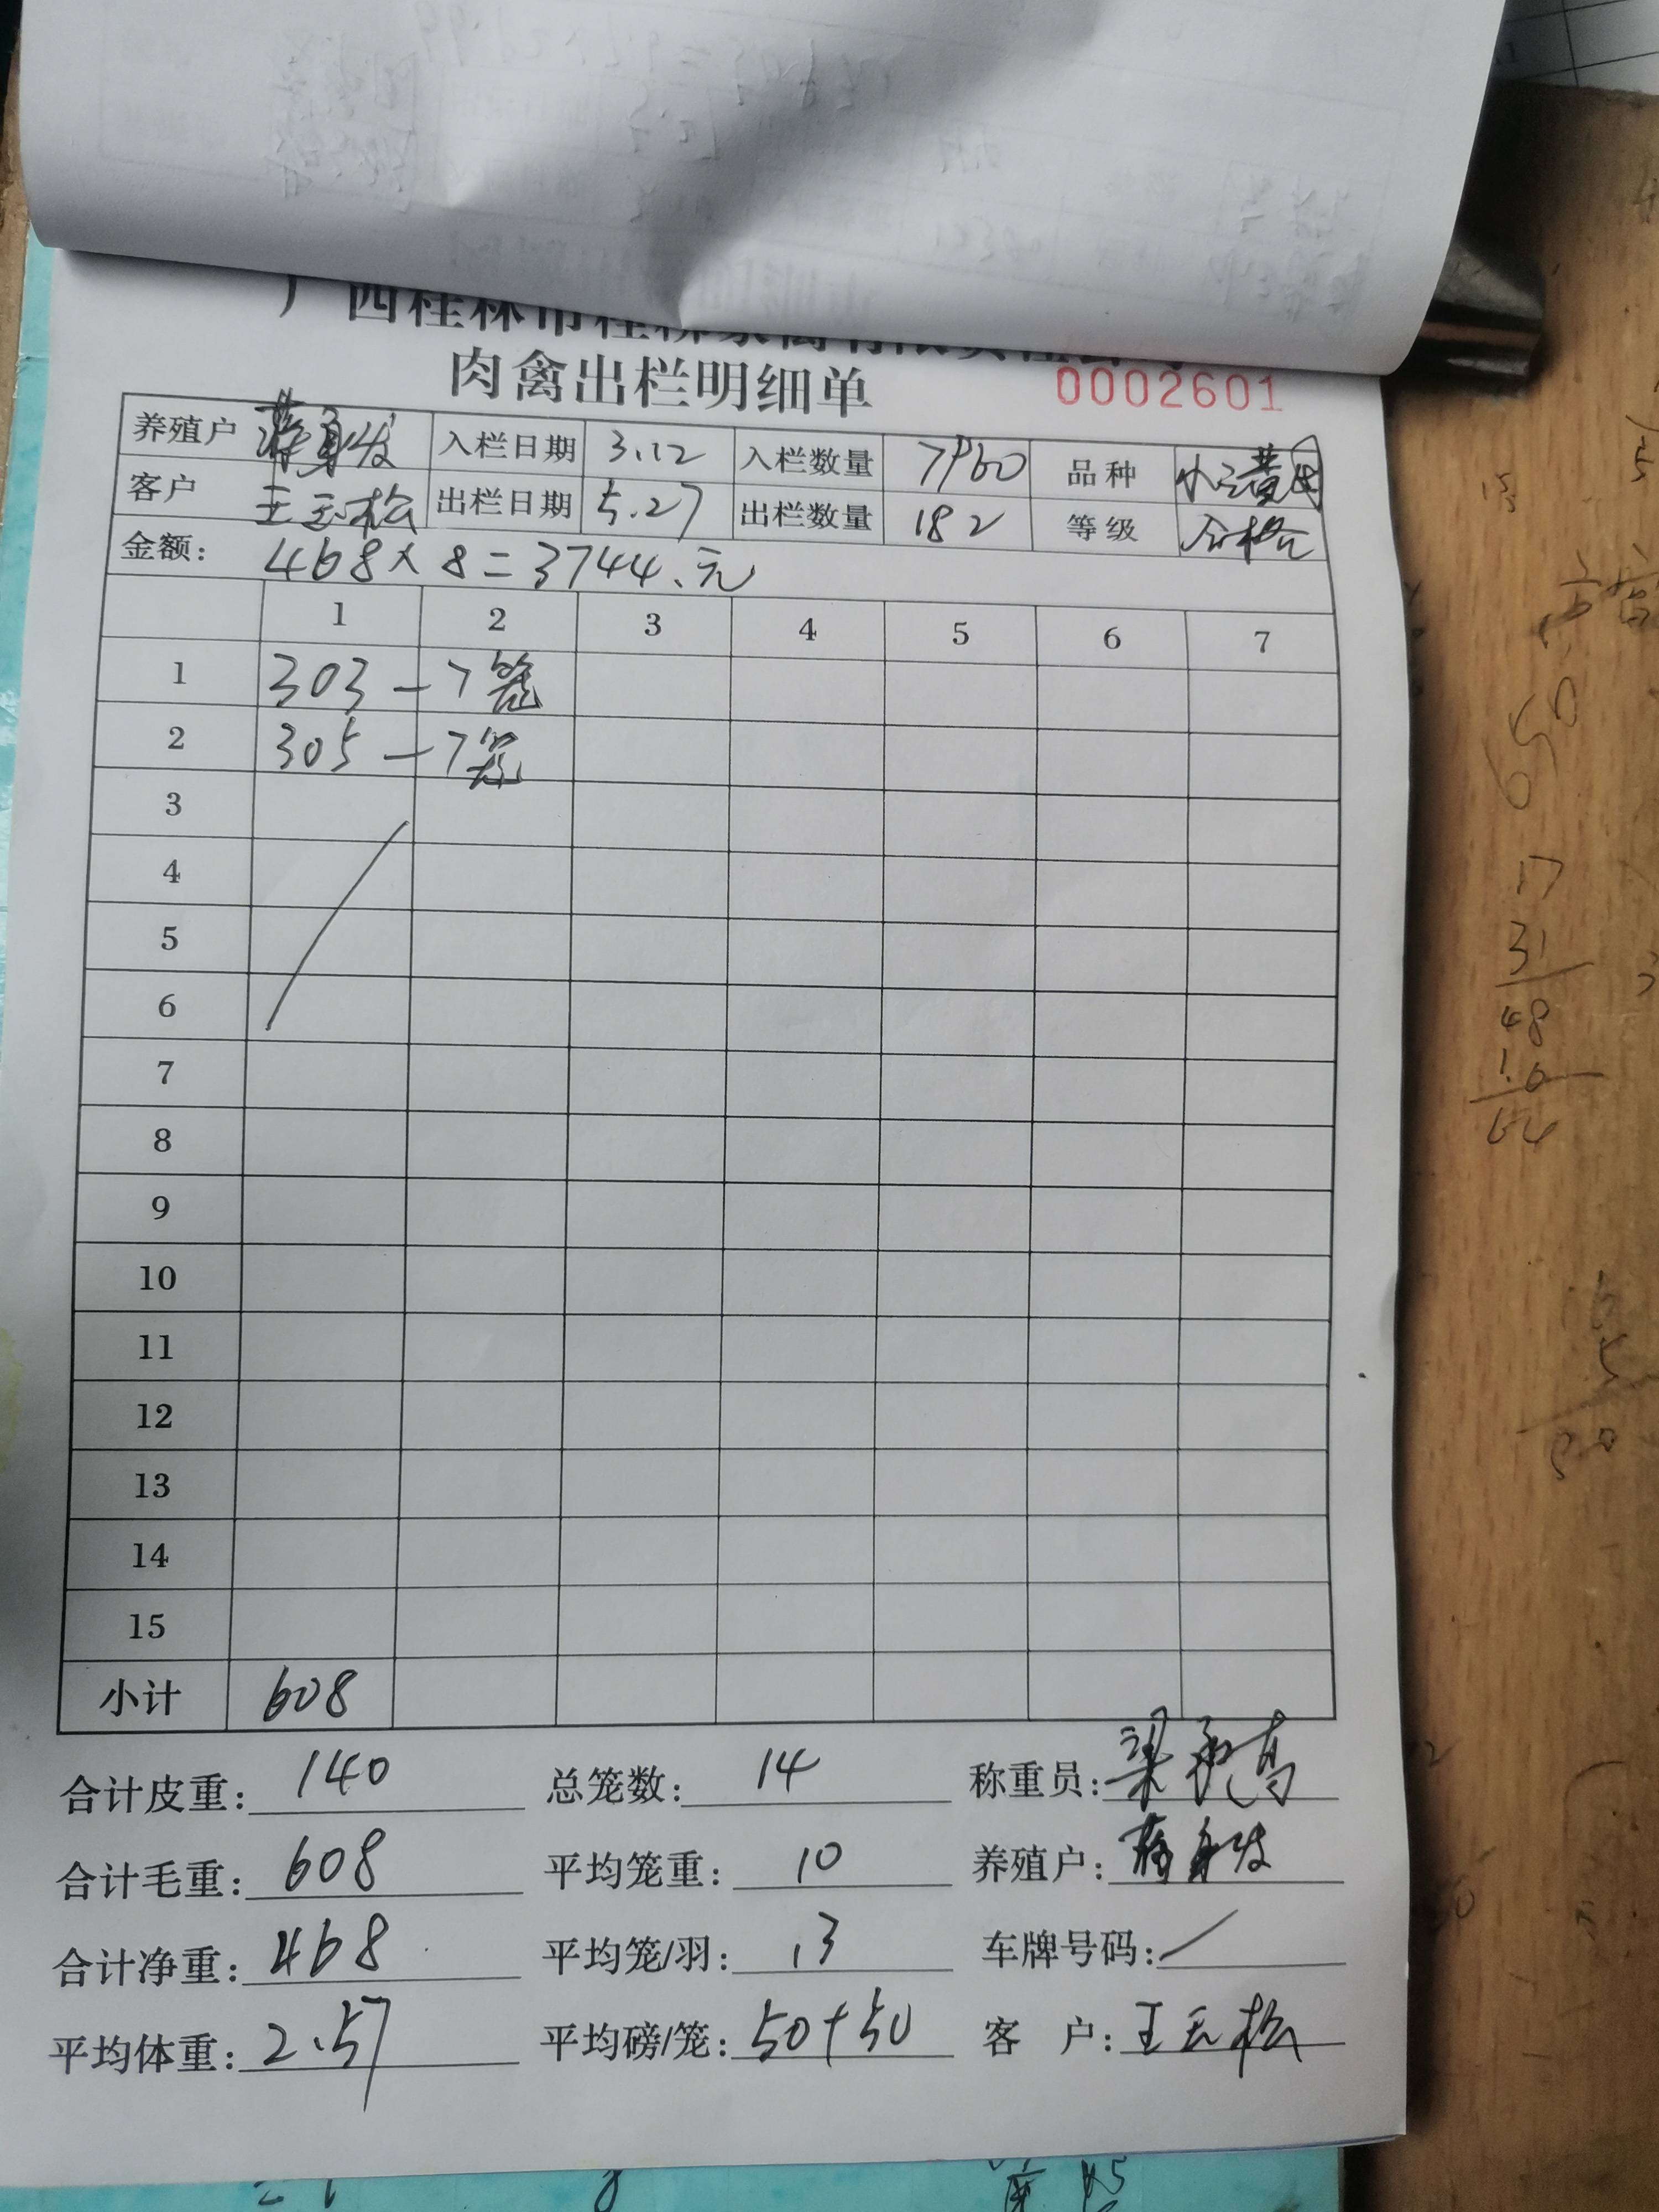 肉禽出栏明细单 0002601
养殖户 蒋身发 入栏日期 3.12 入栏数量 7960 品种
客户 王玉松 出栏日期 5.27 出栏数量 182 等级 合格
金额: 468×8=3744.元
1 2 3 4 5 6 7
1 303-7笼
2 305-7笼
3
4
5
6
7
8
9
10
11
12
13
14
15
小计 608
合计皮重: 140 总笼数: 14 称重员: 梁
合计毛重: 608 平均笼重: 10 养殖户: 蒋身发
合计净重: 468 平均笼/羽: 13 车牌号码: /
平均体重: 2.57 平均磅/笼: 50+50 客 户: 王玉松
650
17
31
48
16
64